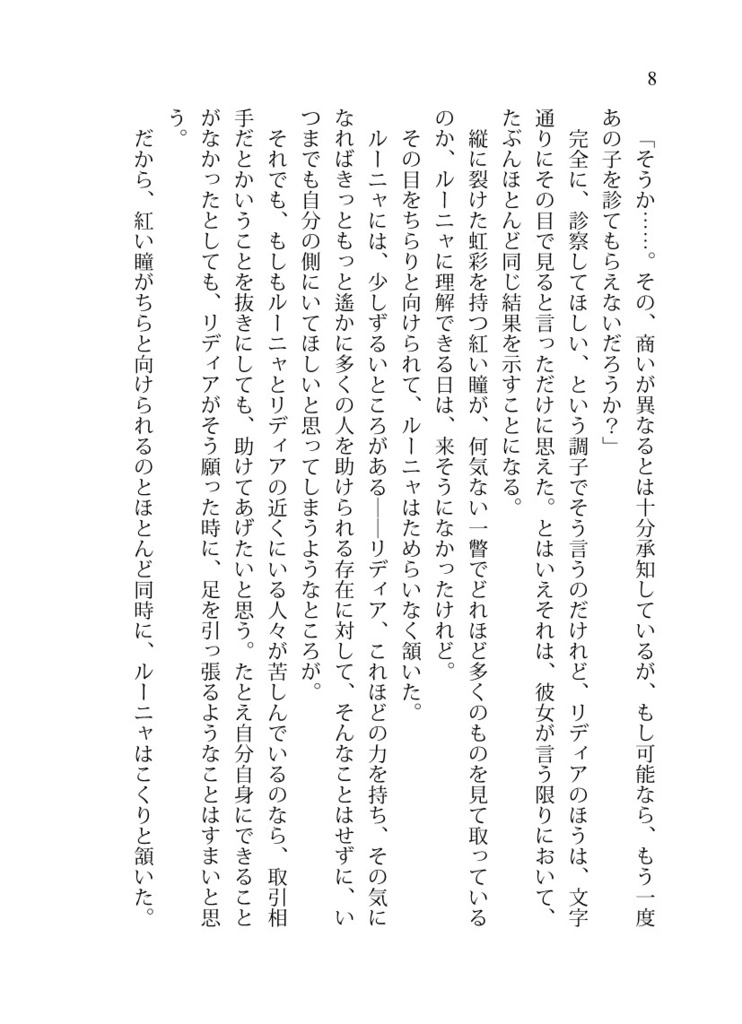 8
「そうか……。その、商いが異なるとは十分承知しているが、もし可能なら、もう一度
あの子を診てもらえないだろうか？」
完全に、診察してほしい、という調子でそう言うのだけれど、リディアのほうは、文字
通りにその目で見ると言っただけに思えた。とはいえそれは、彼女が言う限りにおいて、
たぶんほとんど同じ結果を示すことになる。
縦に裂けた虹彩を持つ紅い瞳が、何気ない一瞥でどれほど多くのものを見て取っている
のか、ルーニャに理解できる日は、来そうになかったけれど。
その目をちらりと向けられて、ルーニャはためらいなく頷いた。
ルーニャには、少しずるいところがある――リディア、これほどの力を持ち、その気に
なればきっともっと遙かに多くの人を助けられる存在に対して、そんなことはせずに、い
つまでも自分の側にいてほしいと思ってしまうようなところが。
それでも、もしもルーニャとリディアの近くにいる人々が苦しんでいるのなら、取引相
手だとかいうことを抜きにしても、助けてあげたいと思う。たとえ自分自身にできること
がなかったとしても、リディアがそう願った時に、足を引っ張るようなことはすまいと思
う。
だから、紅い瞳がちらと向けられるのとほとんど同時に、ルーニャはこくりと頷いた。